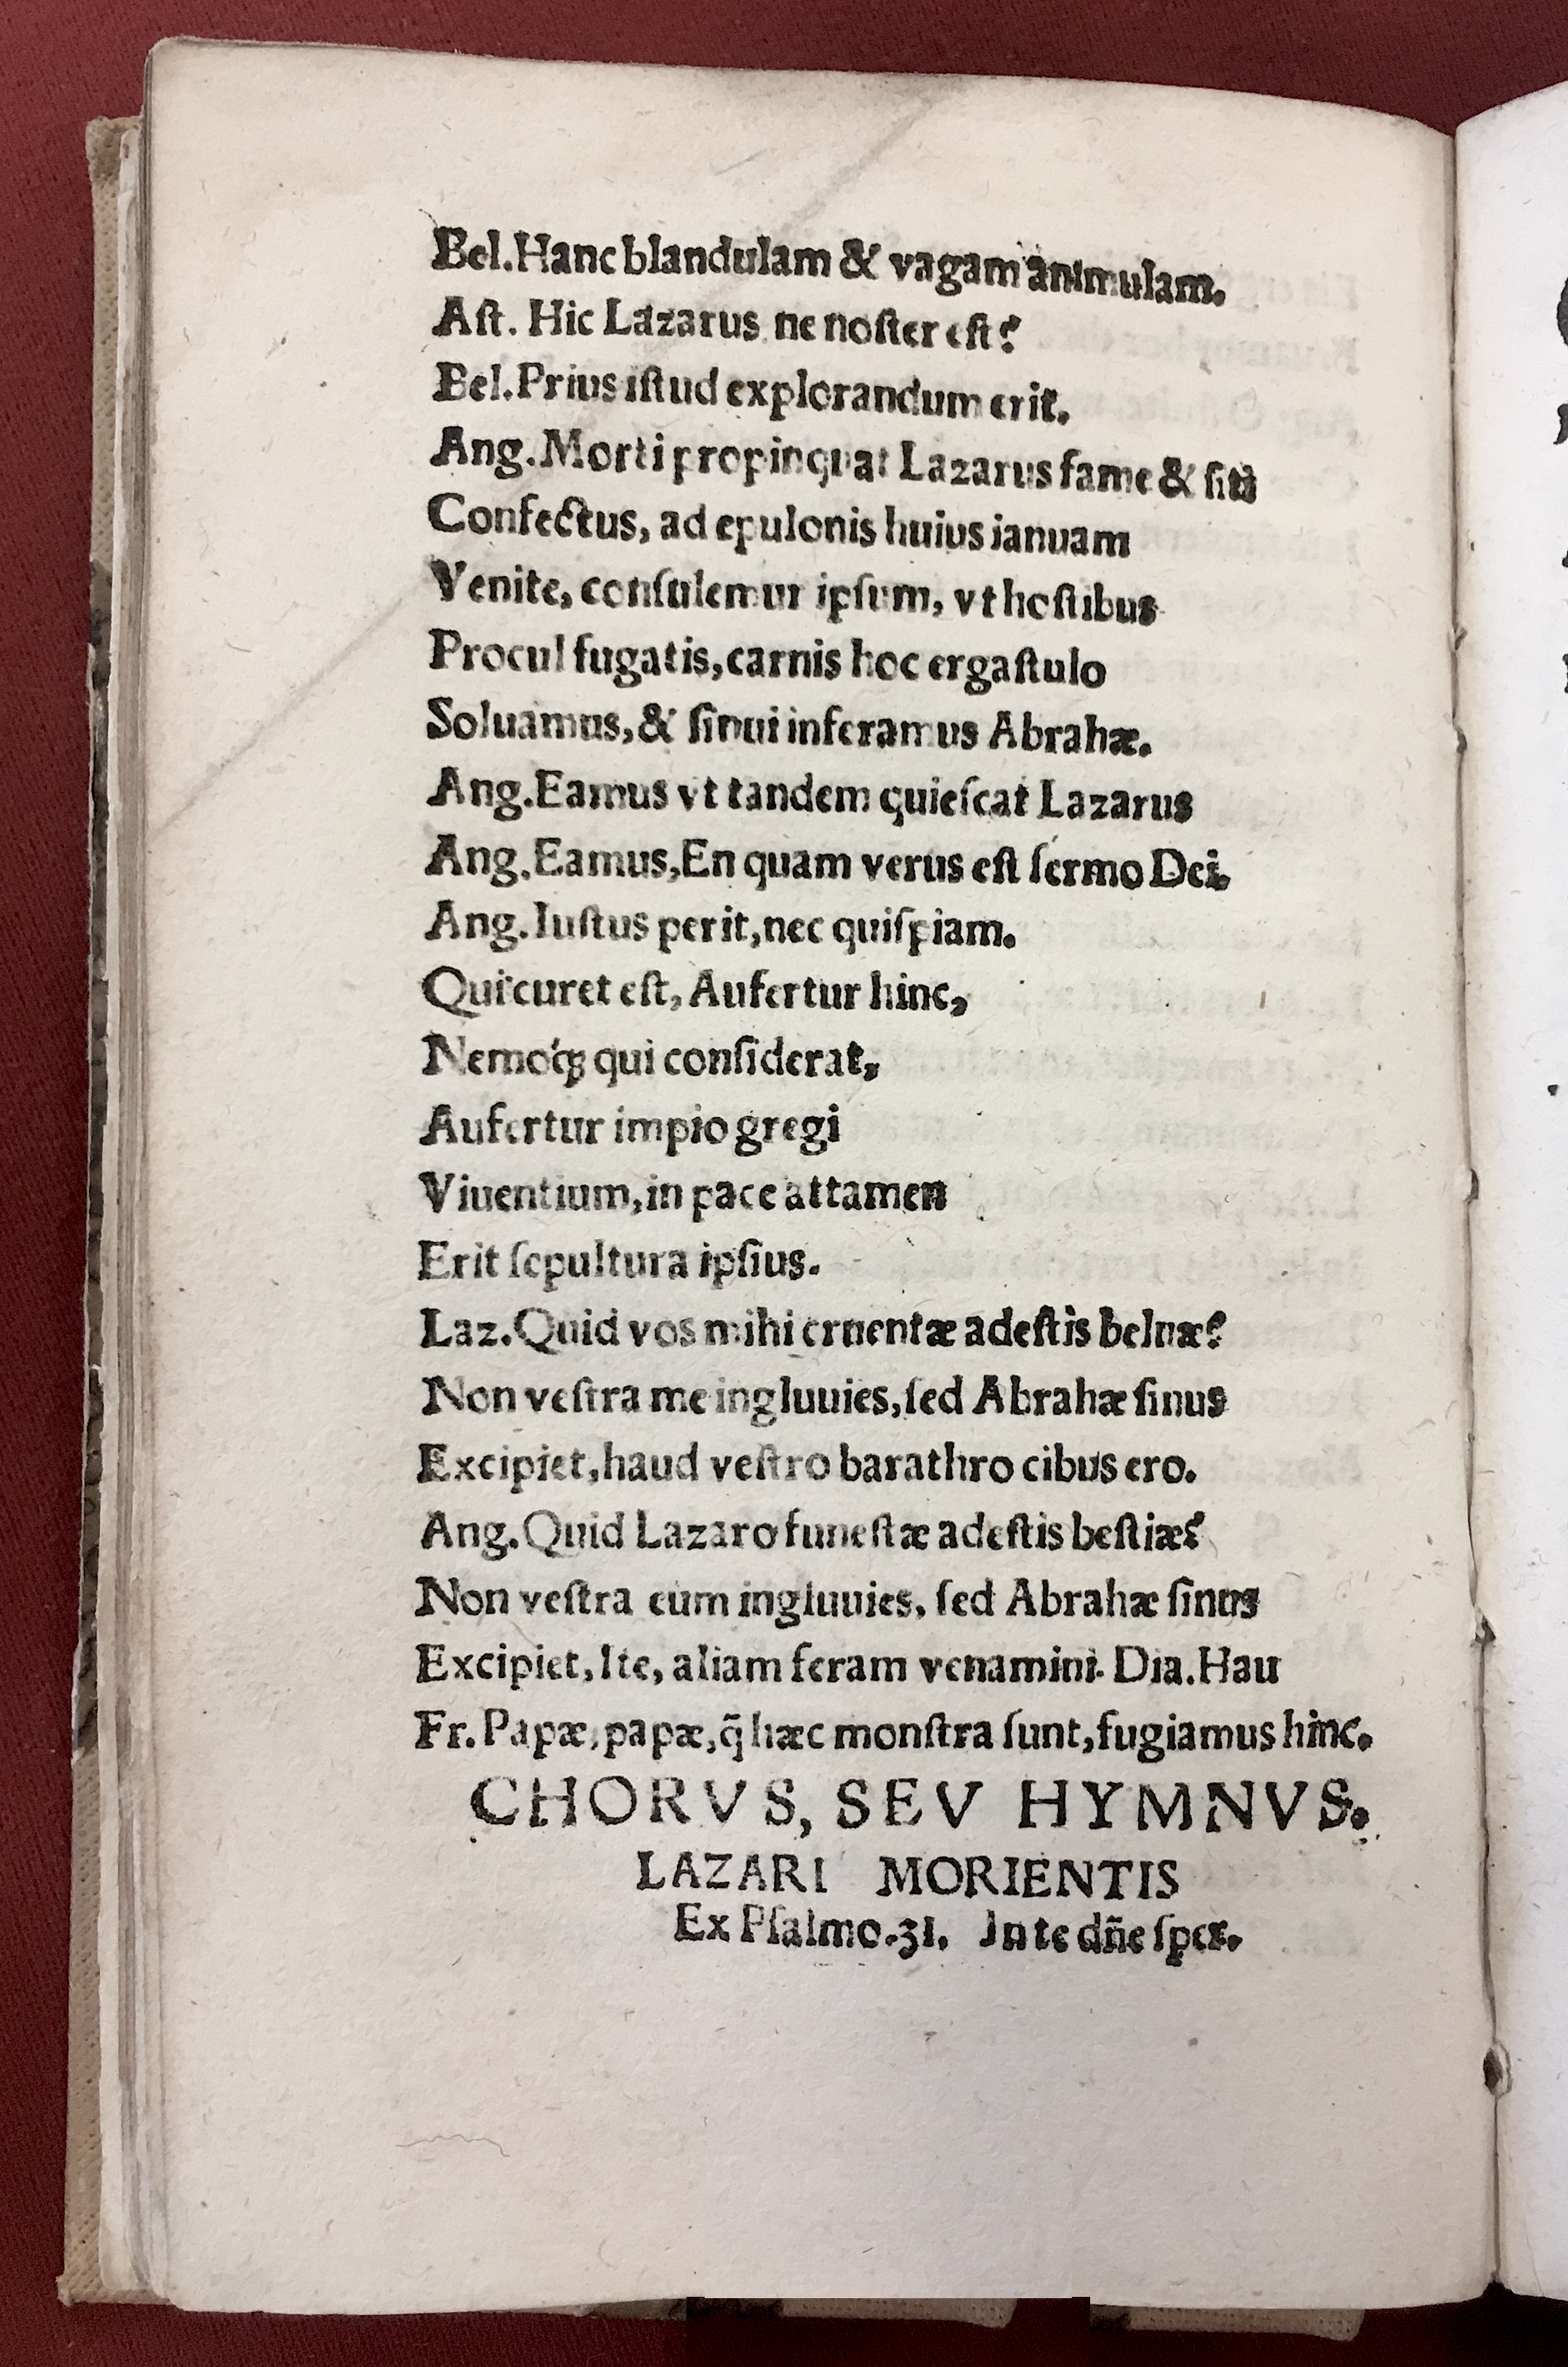 Bel.Hanc blandulam & vagam animulam.
Aſt. Hic Lazarus ne noſter eſt?
Bel.Prius iſtud explorandum erit.
Ang.Morti propinquat Lazarus fame & ſiti
Confectus, ad epulonis huius ianuam
Venite, conſulemur ipſum, vt hoſtibus
Procul fugatis, carnis hoc ergaſtulo
Soluamus, & ſinui inferamus Abrahæ.
Ang.Eamus vt tandem quieſcat Lazarus
Ang.Eamus, En quam verus eſt ſermo Dei.
Ang.Iuſtus perit, nec quiſpiam.
Qui curet eſt, Aufertur hinc,
Nemoq́ꝫ qui conſiderat,
Aufertur impio gregi
Viuentium, in pace attamen
Erit ſepultura ipſius.
Laz.Quid vos mihi cruentæ adeſtis beluæ?
Non veſtra me ingluuies, ſed Abrahæ ſinus
Excipiet, haud veſtro barathro cibus ero.
Ang.Quid Lazaro funeſtæ adeſtis beſtiæ?
Non veſtra eum ingluuies, ſed Abrahæ ſinus
Excipiet, Ite, aliam feram venamini. Dia.Hau
Fr.Papæ, papæ, q̃ hæc monſtra ſunt, fugiamus hinc.
CHORVS, SEV HYMNVS.
LAZARI MORIENTIS
Ex Pſalmo.31. In te dñe ſper.